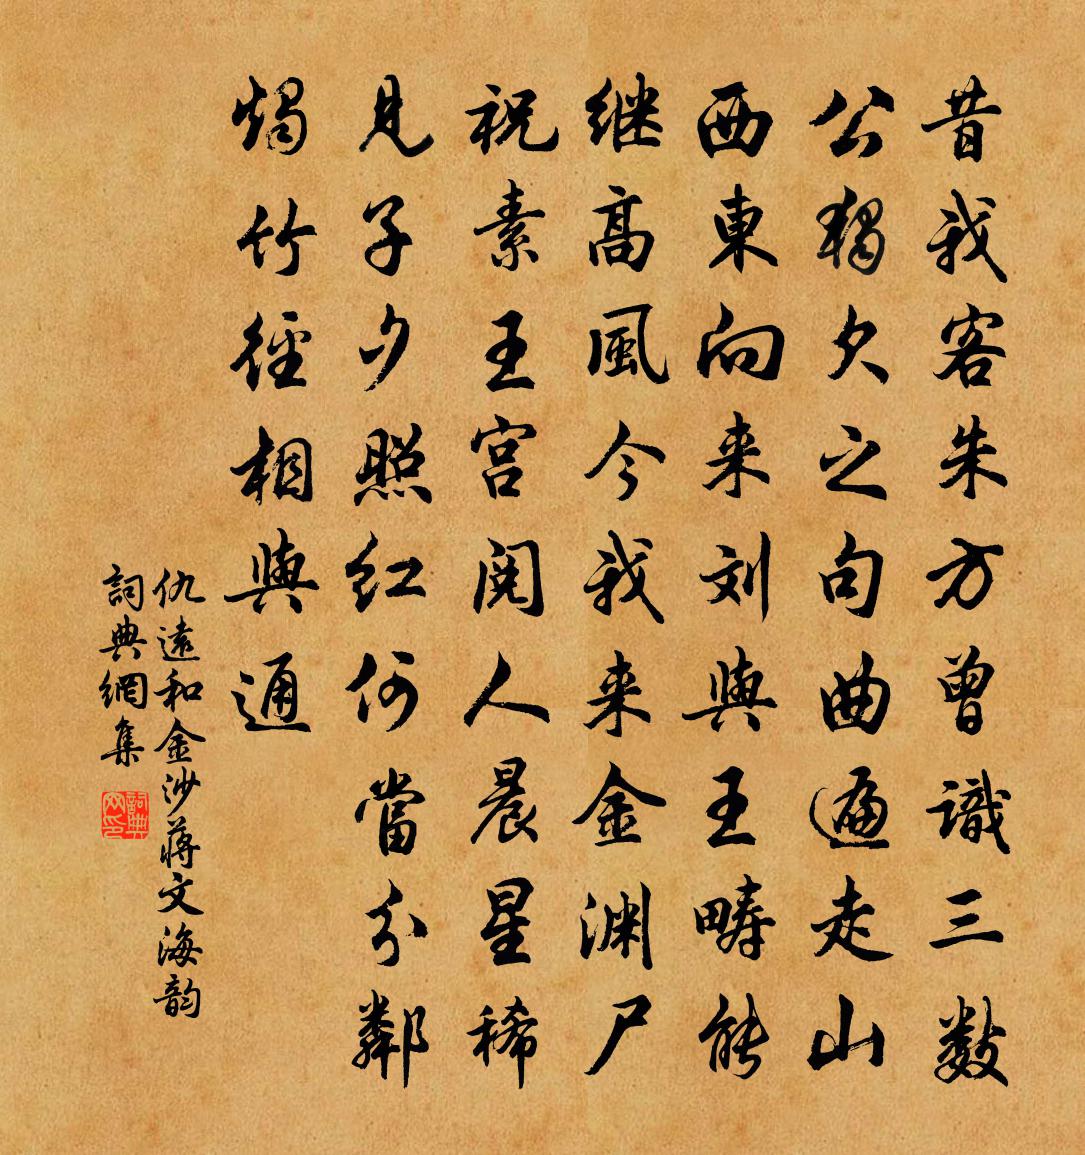 昔我客朱方曾識三數
公獨欠之句曲遍走山
西東向来刘與王疇能
继高風今我来金渊尸
祝素王宫阅人晨星稀
見子夕照红何當分鄰
燭竹徑相與通
仇遠和金沙蔣文海韵
詞典網集
詞典网印